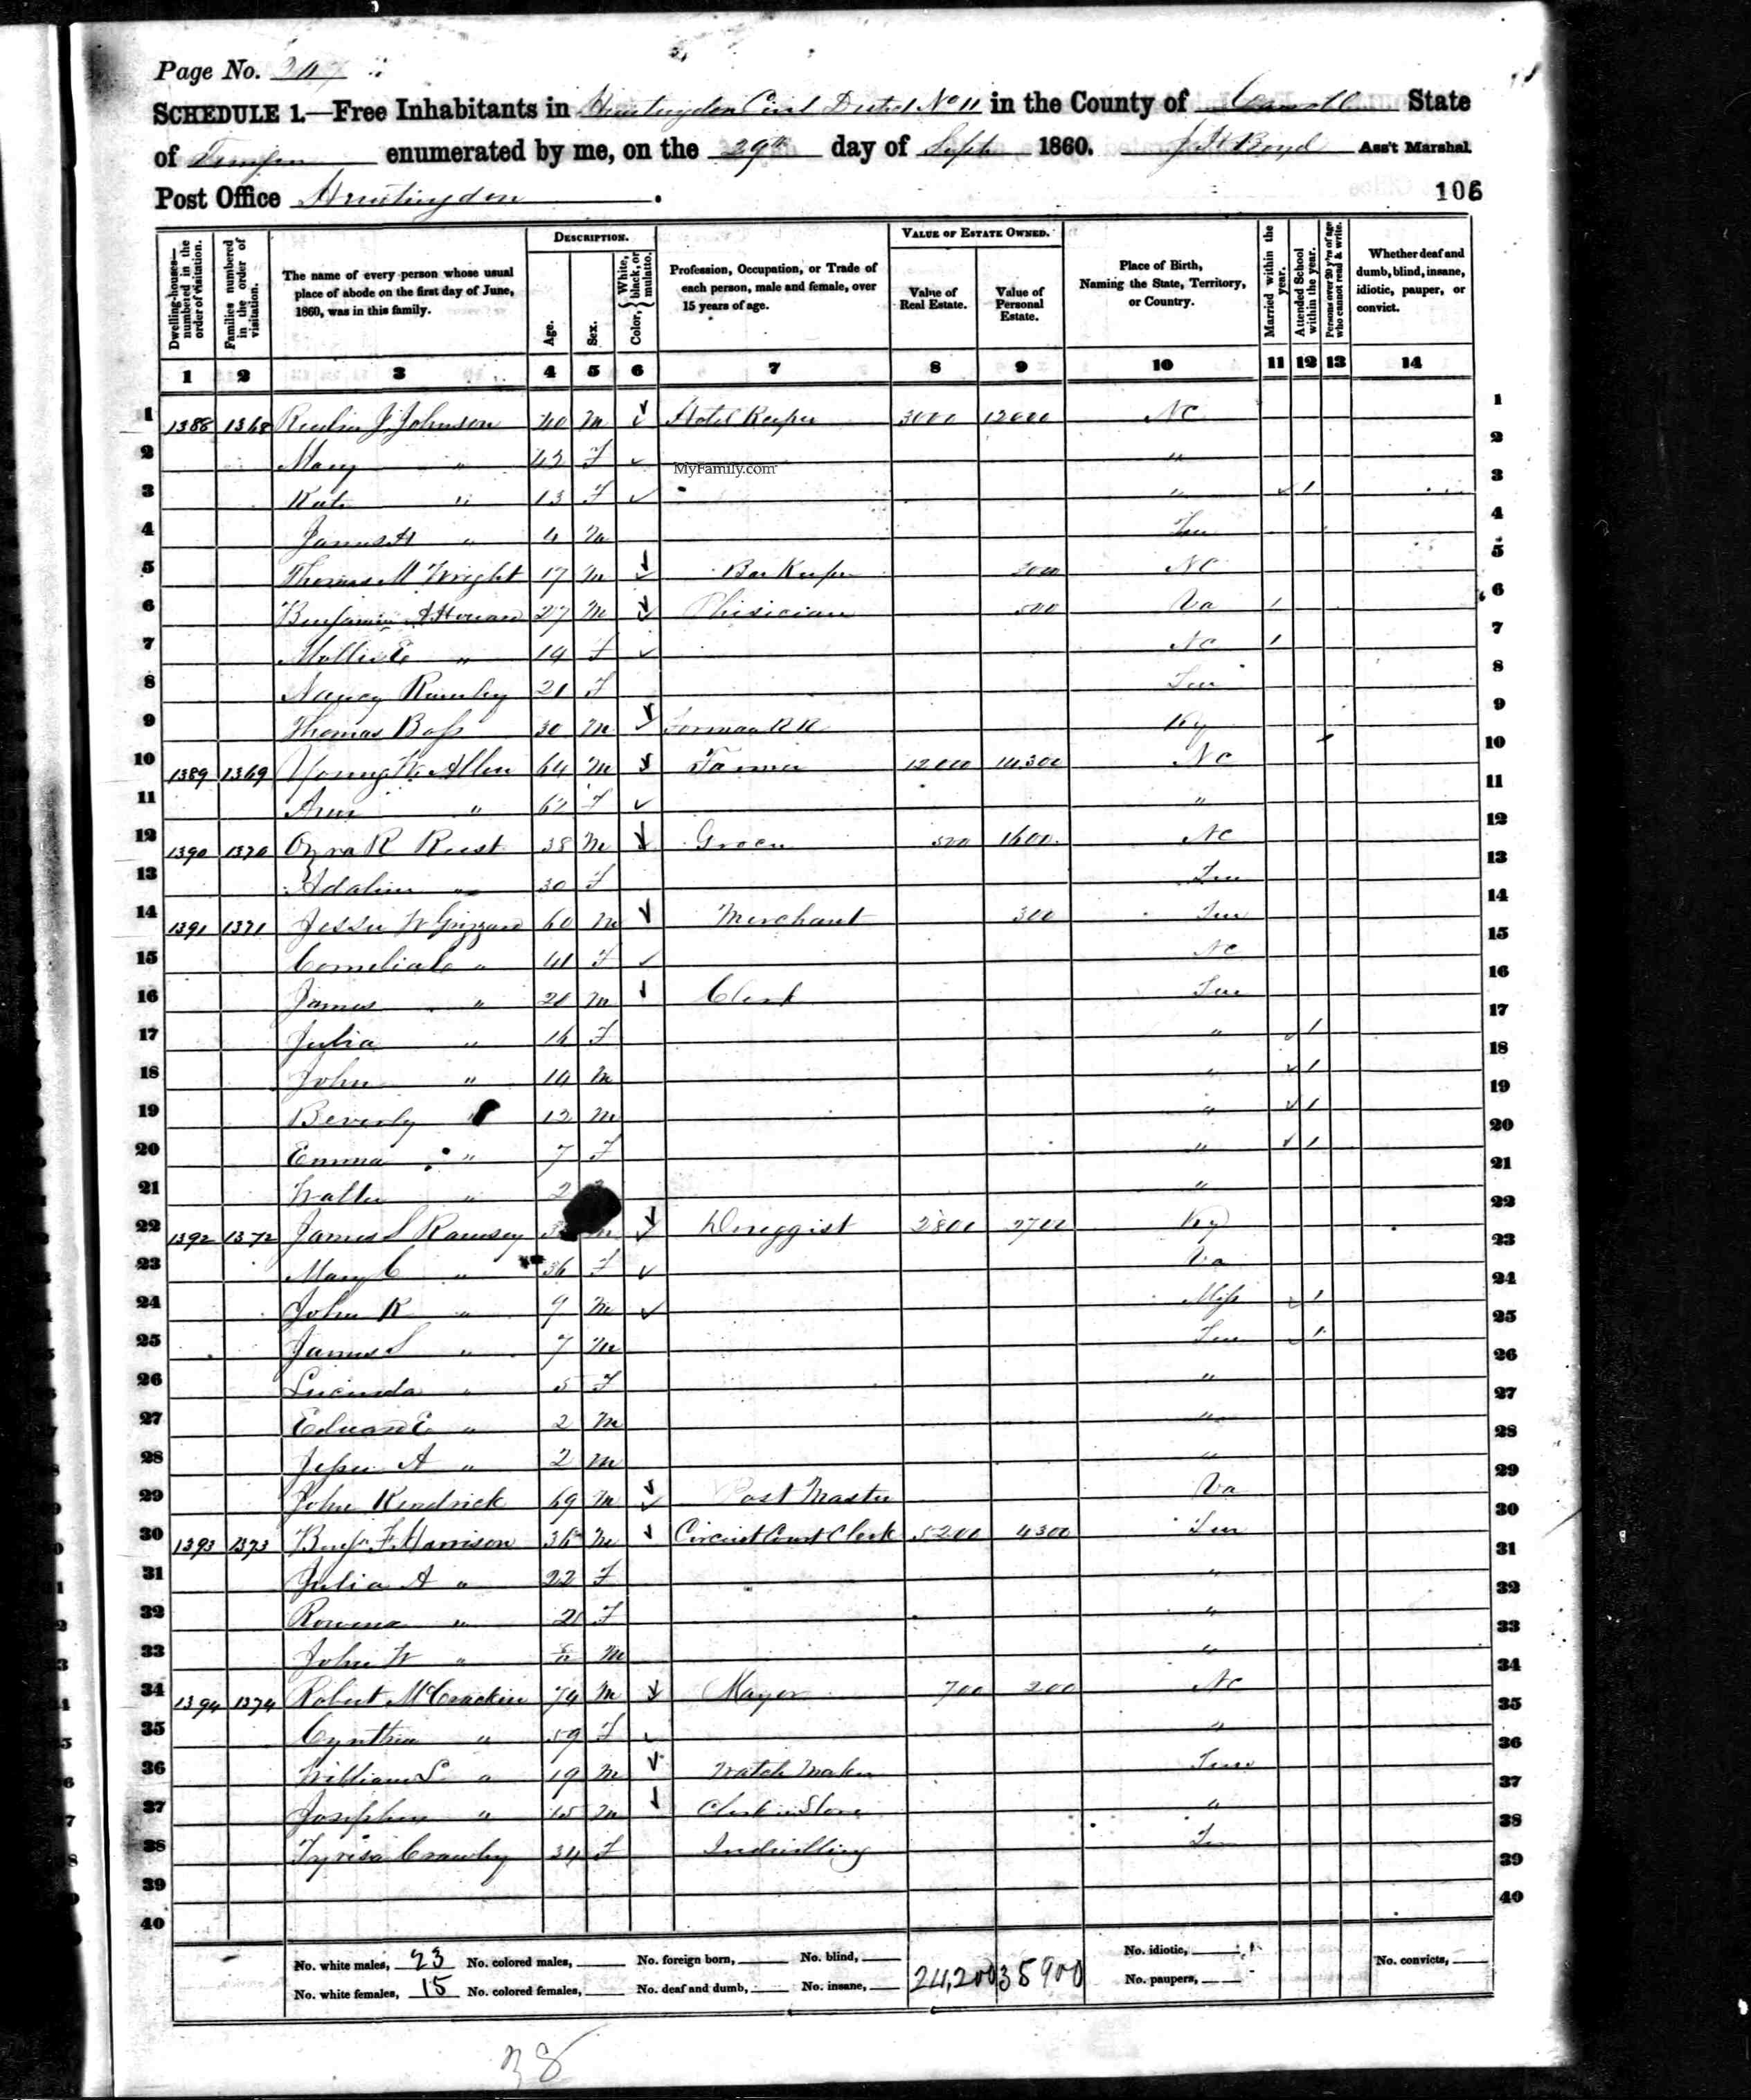 Page No. 207
SCHEDULE 1.—Free Inhabitants in Huntingdon Civil District No 11 in the County of Carroll State
of Tennessee enumerated by me, on the 29th day of Sept 1860. Boyd Ass't Marshal.
Post Office Huntingdon. 106
DESCRIPTION. VALUE OF ESTATE OWNED.
Dwelling-houses—numbered in the order of visitation. Families numbered in the order of visitation. The name of every person whose usual place of abode on the first day of June, 1860, was in this family. Age. Sex. Color, { White, black, or mulatto. Profession, Occupation, or Trade of each person, male and female, over 15 years of age. Value of Real Estate. Value of Personal Estate. Place of Birth, Naming the State, Territory, or Country. Married within the year. Attended School within the year. Persons over 20 y'rs of age who cannot read & write. Whether deaf and dumb, blind, insane, idiotic, pauper, or convict.
1 2 3 4 5 6 7 8 9 10 11 12 13 14
1 1388 1368 Reubin J Johnson 40 M Hotel Keeper 3000 12000 NC 1
2 Mary " 42 F " 2
MyFamily.com
3 Kate " 13 F " 1 3
4 James H " 4 M Ten 4
5 Thomas M Wright 17 M Bar Keeper NC 5
6 Benjamin A Howard 27 M Phisician 500 Va 1 6
7 Mollie E " 19 F NC 1 7
8 Nancy 21 F Ten 8
9 Thomas Bass 30 M Forman R R Ky 9
10 1389 1369 Young W. Allen 64 M Farmer 12000 14300 NC 10
11 Ann " 62 F " 11
12 1390 1370 Ozra R 38 M Grocer 500 1600 NC 12
13 Adaline " 30 F Ten 13
14 1391 1371 Jesse W Grizzard 60 M Merchant 300 Ten 14
15 Cornelia C " 41 F NC 15
16 James " 20 M Clerk Ten 16
17 Julia " 16 F " 1 17
18 John " 14 M " 1 18
19 Beverly " 12 M " 1 19
20 Emma " 7 F " 1 20
21 Walter " 2 " 21
22 1392 1372 James S Ramsey M Druggist 2800 2700 Ky 22
23 Mary C " 36 F Va 23
24 John R " 9 M Miss 1 24
25 James S " 7 M Ten 1 25
26 Lucinda " 5 F " 26
27 Edward E " 2 M " 27
28 Jesse A " 2 M " 28
29 John Kendrick 69 M Post Master Va 29
30 1393 1373 Benj. F. Harrison 36 M Circuit Court Clerk 5200 4300 Ten 30
31 Julia A " 22 F " 31
32 Rowena " F " 32
33 John W " M " 33
34 1394 1374 Robert McCrackin 74 M Mayor 700 200 NC 34
35 Cynthia " 59 F " 35
36 William L " 19 M Watch Maker Tenn 36
37 Josephus " 15 M Clerk in Store " 37
38 Tyrisa Crawley 34 F Ten 38
39 39
40 40
No. white males, 23 No. colored males, No. foreign born, No. blind, No. idiotic,
No. white females, 15 No. colored females, No. deaf and dumb, No. insane, 24,200 35900 No. paupers, No. convicts,
38